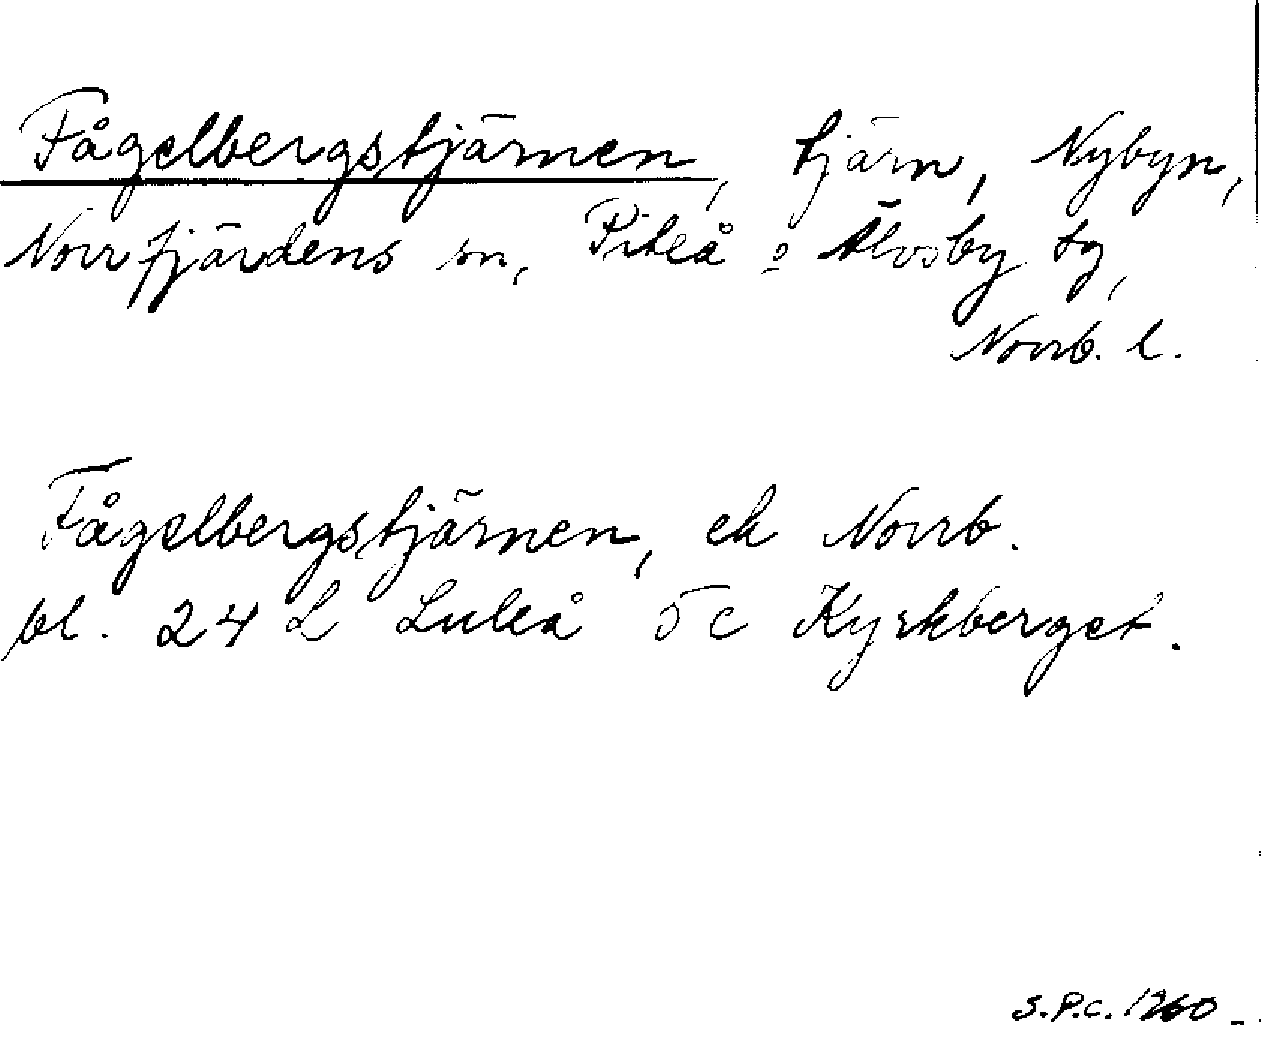 Fågelbergstjärnen, tjärn, Nybyn,
Norrfjärdens sn, Piteå o Älvsby tg,
Norrb. l.
Fågelbergstjärnen, ek Norrb.
bl. 24 L Luleå 5 c Kyrkberget.
S.P.C. 1960